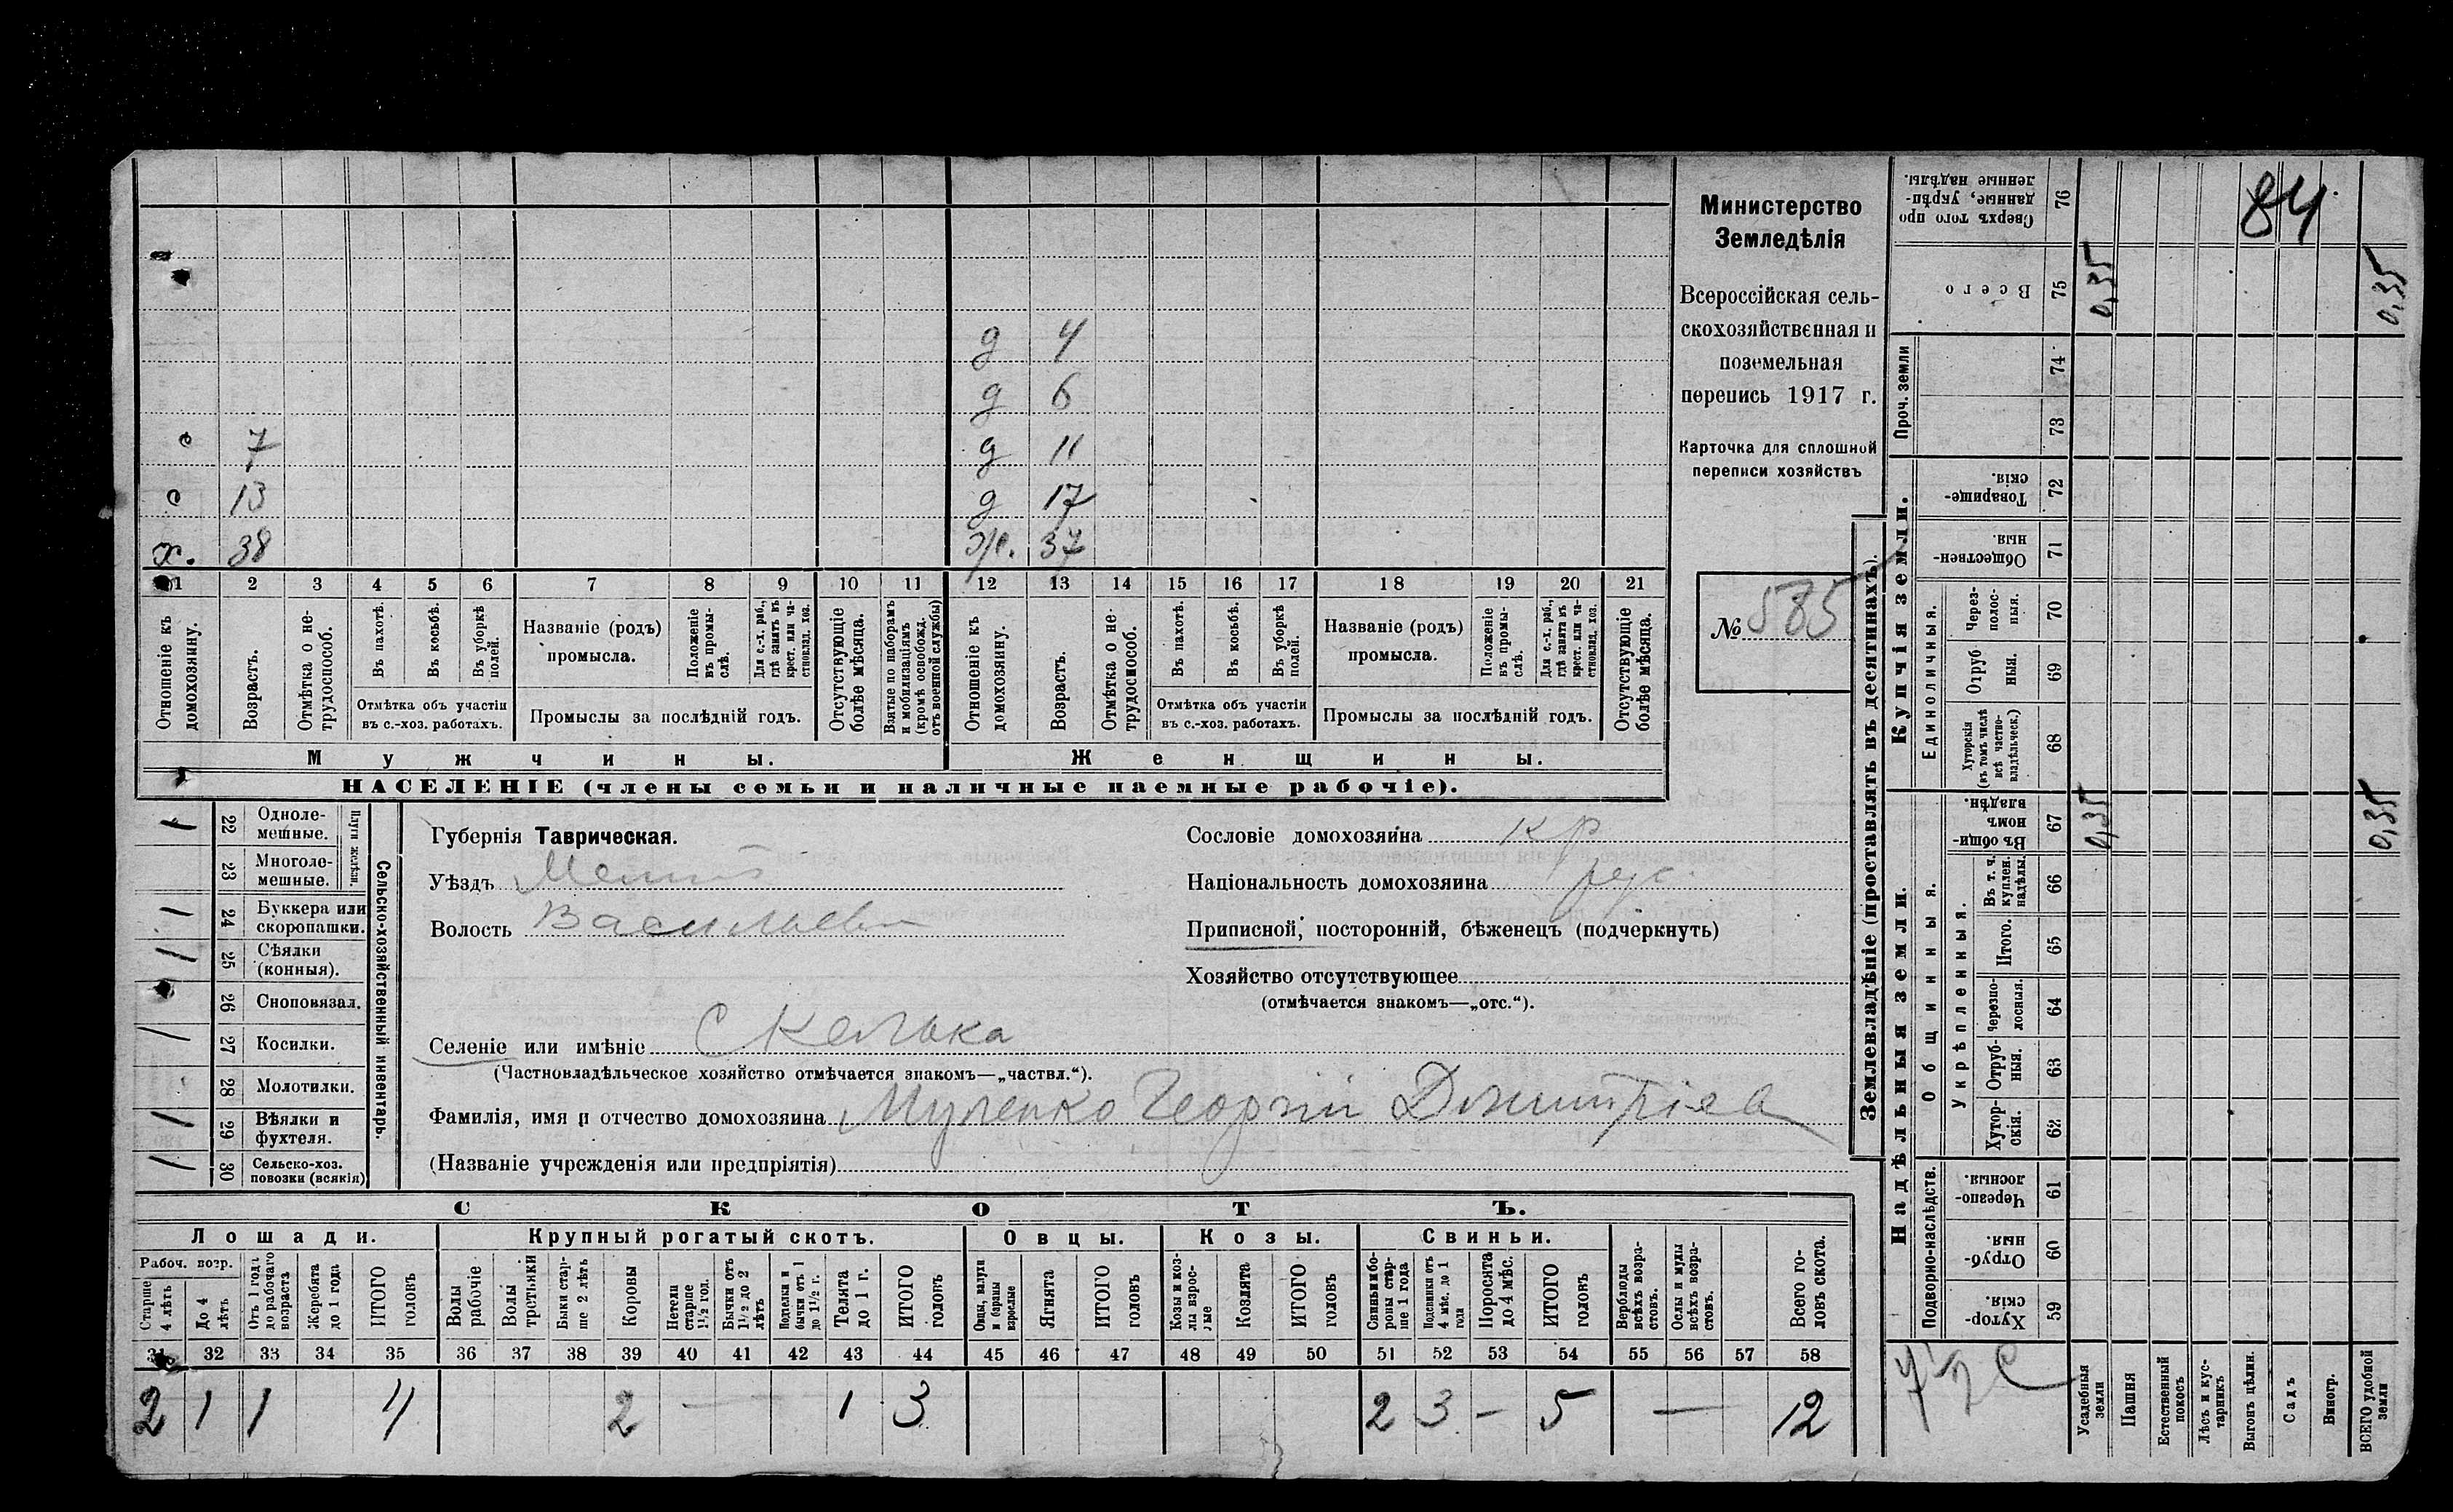 Министерство
Земледѣлія
Всероссійская сель-
скохозяйственная и
поземельная
перепись 1917 г.
Карточка для сплошной
переписи хозяйствъ
№ 585
84
д 4
д 6
с 7 д 11
с 13 д 17
х. 38 ж. 37
1 2 3 4 5 6 7 8 9 10 11 12 13 14 15 16 17 18 19 20 21
Отношеніе къ домохозяину.
Возрастъ.
Отмѣтка о не-трудоспособ.
Въ пахотѣ.
Въ косьбѣ.
Въ уборкѣ полей.
Отмѣтка объ участіи
въ с.-хоз. работахъ.
Названіе (родъ)
промысла.
Положеніе въ промы-слѣ.
Для с.-х. раб., гдѣ занятъ въ крест. или ча-стновлад. хоз.
Промыслы за послѣдній годъ.
Отсутствующіе болѣе мѣсяца.
Взятые по наборамъ и мобилизаціямъ (кромѣ освобожд. отъ военной службы)
Отношеніе къ домохозяину.
Возрастъ.
Отмѣтка о не-трудоспособ.
Въ пахотѣ.
Въ косьбѣ.
Въ уборкѣ полей.
Отмѣтка объ участіи
въ с.-хоз. работахъ.
Названіе (родъ)
промысла.
Положеніе въ промы-слѣ.
Для с.-х. раб., гдѣ занята въ крест. или ча-стновлад. хоз.
Промыслы за послѣдній годъ.
Отсутствующіе болѣе мѣсяца.
Мужчины. Женщины.
НАСЕЛЕНІЕ (члены семьи и наличные наемные рабочіе).
Сельско-хозяйственный инвентарь.
Плуги желѣзн.
1 22 Одноле-мешные.
23 Многоле-мешные.
1 24 Буккера или скоропашки.
1 25 Сѣялки (конныя).
26 Сноповязал.
1 27 Косилки.
28 Молотилки.
1 29 Вѣялки и фухтеля.
1 30 Сельско-хоз. повозки (всякія)
Губернія Таврическая.
Уѣздъ Мелит
Волость Васильев
Селеніе или имѣніе Скелька
(Частновладѣльческое хозяйство отмѣчается знакомъ—„частвл.“).
Фамилія, имя и отчество домохозяина Муленко Георгій Дмитріев
(Названіе учрежденія или предпріятія)
Сословіе домохозяина кр
Національность домохозяина рус.
Приписной, посторонній, бѣженецъ (подчеркнуть)
Хозяйство отсутствующее
(отмѣчается знакомъ—„отс.“).
СКОТЪ.
Лошади. Крупный рогатый скотъ. Овцы. Козы. Свиньи.
Рабоч. возр.
Старше 4 лѣтъ
До 4 лѣтъ
Отъ 1 года до рабочаго возраста
Жеребята до 1 года
ИТОГО головъ
Волы рабочіе
Волы третьяки
Быки стар-ше 2 лѣтъ
Коровы
Нетели старше 1½ год.
Бычки отъ 1½ до 2 лѣтъ
Подтелки и бычки отъ 1 до 1½ г.
Телята до 1 г.
ИТОГО головъ
Овцы, валухи и бараны взрослые
Ягнята
ИТОГО головъ
Козы и коз-лы взрос-лые
Козлята
ИТОГО головъ
Свиньи и бо-ровы стар-ше 1 года
Подсвинки отъ 4 мѣс. до 1 года
Поросята до 4 мѣс.
ИТОГО головъ
Верблюды всѣхъ возра-стовъ.
Ослы и мулы всѣхъ возра-стовъ.
Всего го-ловъ скота.
31 32 33 34 35 36 37 38 39 40 41 42 43 44 45 46 47 48 49 50 51 52 53 54 55 56 57 58
2 1 1 4 2 — 1 3 2 3 — 5 — 12
Землевладѣніе (проставлять въ десятинахъ).
Купчія земли.
Надѣльныя земли.
Сверхъ того про
данные, укрѣп-
ленные надѣлы.
76
Всего 75 0,35 0,35
Проч. земли 74 73
Товарище-скія. 72
Обществен-ныя. 71
Единоличныя.
Через-полос-ныя. 70
Отруб ныя. 69
Хуторскія (въ томъ числѣ всѣ частно-владѣльческ.) 68
Общинныя.
Въ общи номъ владѣн. 67 0,35 0,35
Укрѣпленныя.
Въ т. ч. куплен. надѣлы. 66
Итого. 65
Черезпо-лосныя. 64
Отруб-ныя. 63
Хутор-скія. 62
Подворно-наслѣдств.
Черезпо-лосныя. 61
Отруб-ныя. 60
Хутор-скія. 59
Усадебныя земли
Пашня
Естественный покосъ
Лѣсъ и кус-тарникъ
Выгонъ цѣлин.
Садъ
Виногр.
ВСЕГО удобной земли